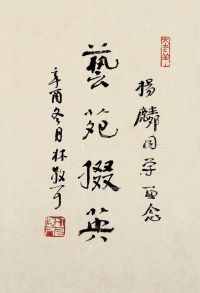 楊麟同学留念
藝苑掇英
辛酉冬月林散耳